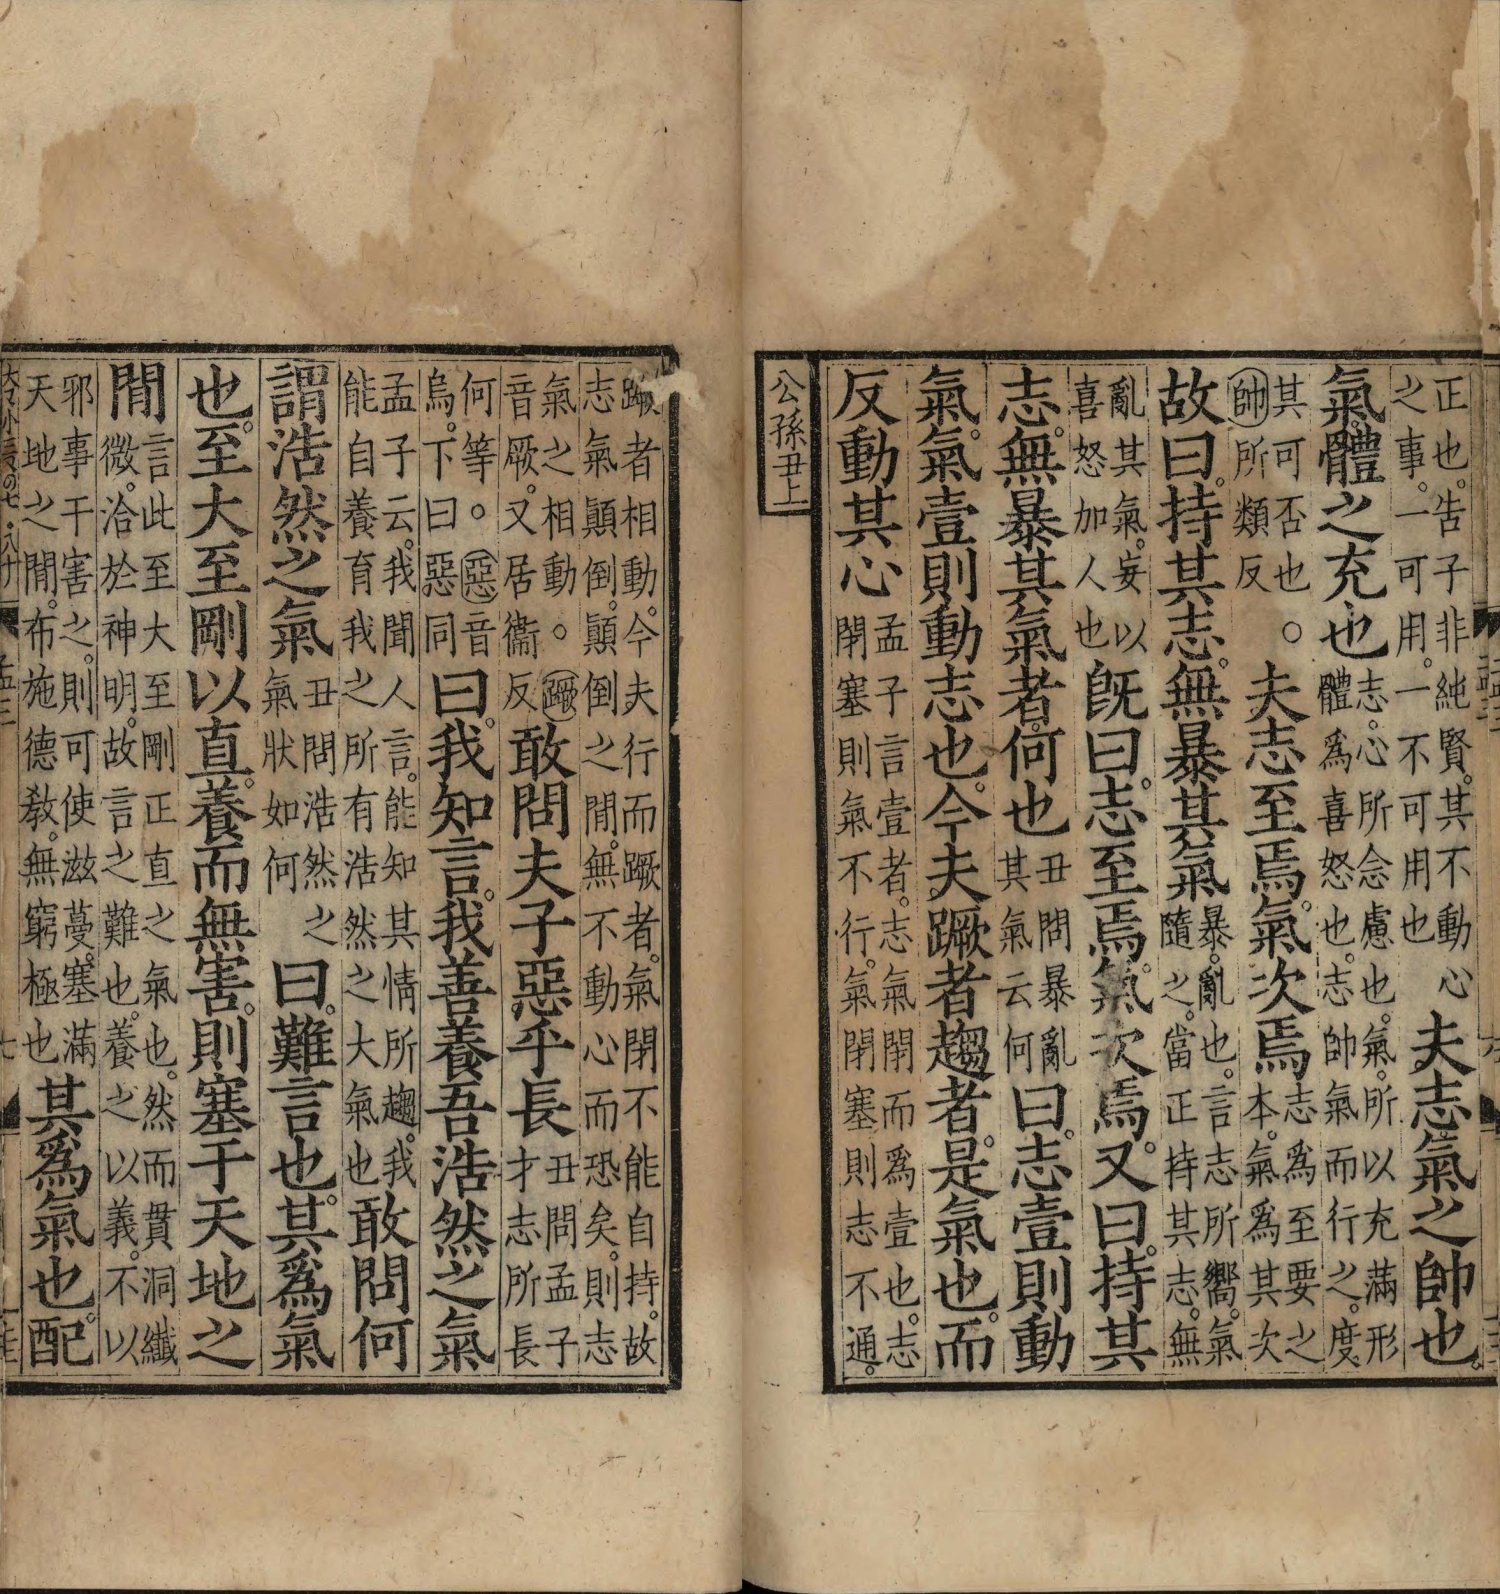 正也。告子非純賢。其不動心
之事。一可用。一不可用也
夫志氣之帥也。
氣體之充也
志。心所念慮也。氣。所以充滿形
體爲喜怒也。志帥氣而行之。度
其可否也。○
帥所類反
夫志至焉。氣次焉
志爲至要之
本。氣爲其次
故曰。持其志。無暴其氣
暴。亂也。言志所嚮。氣
隨之。當正持其志。無
亂其氣。妄以
喜怒加人也
旣曰。志至焉。氣次焉。又曰。持其
志。無暴其氣者。何也
丑問暴亂
其氣云何
曰。志壹則動
氣。氣壹則動志也。今夫蹶者趨者。是氣也。而
反動其心
孟子言壹者。志氣閉而爲壹也。志
閉塞則氣不行。氣閉塞則志不通。
公孫丑上
蹶者相動。今夫行而蹶者。氣閉不能自持。故
志氣顚倒。顚倒之間。無不動心而恐矣。則志
氣之相動。○蹶
音厥。又居衞反
敢問夫子惡乎長
丑問孟子
才志所長
何等。○惡音
烏。下曰惡同
曰。我知言。我善養吾浩然之氣
孟子云。我聞人言。能知其情所趨。我
能自養育我之所有浩然之大氣也
敢問何
謂浩然之氣
丑問浩然之
氣狀如何
曰。難言也。其爲氣
也。至大至剛以直。養而無害。則塞于天地之
間
言此至大至剛正直之氣也。然而貫洞纖
微。洽於神明。故言之難也。養之以義。不以
邪事干害之。則可使滋蔓。塞滿
天地之間。布施德敎。無窮極也
其爲氣也。配